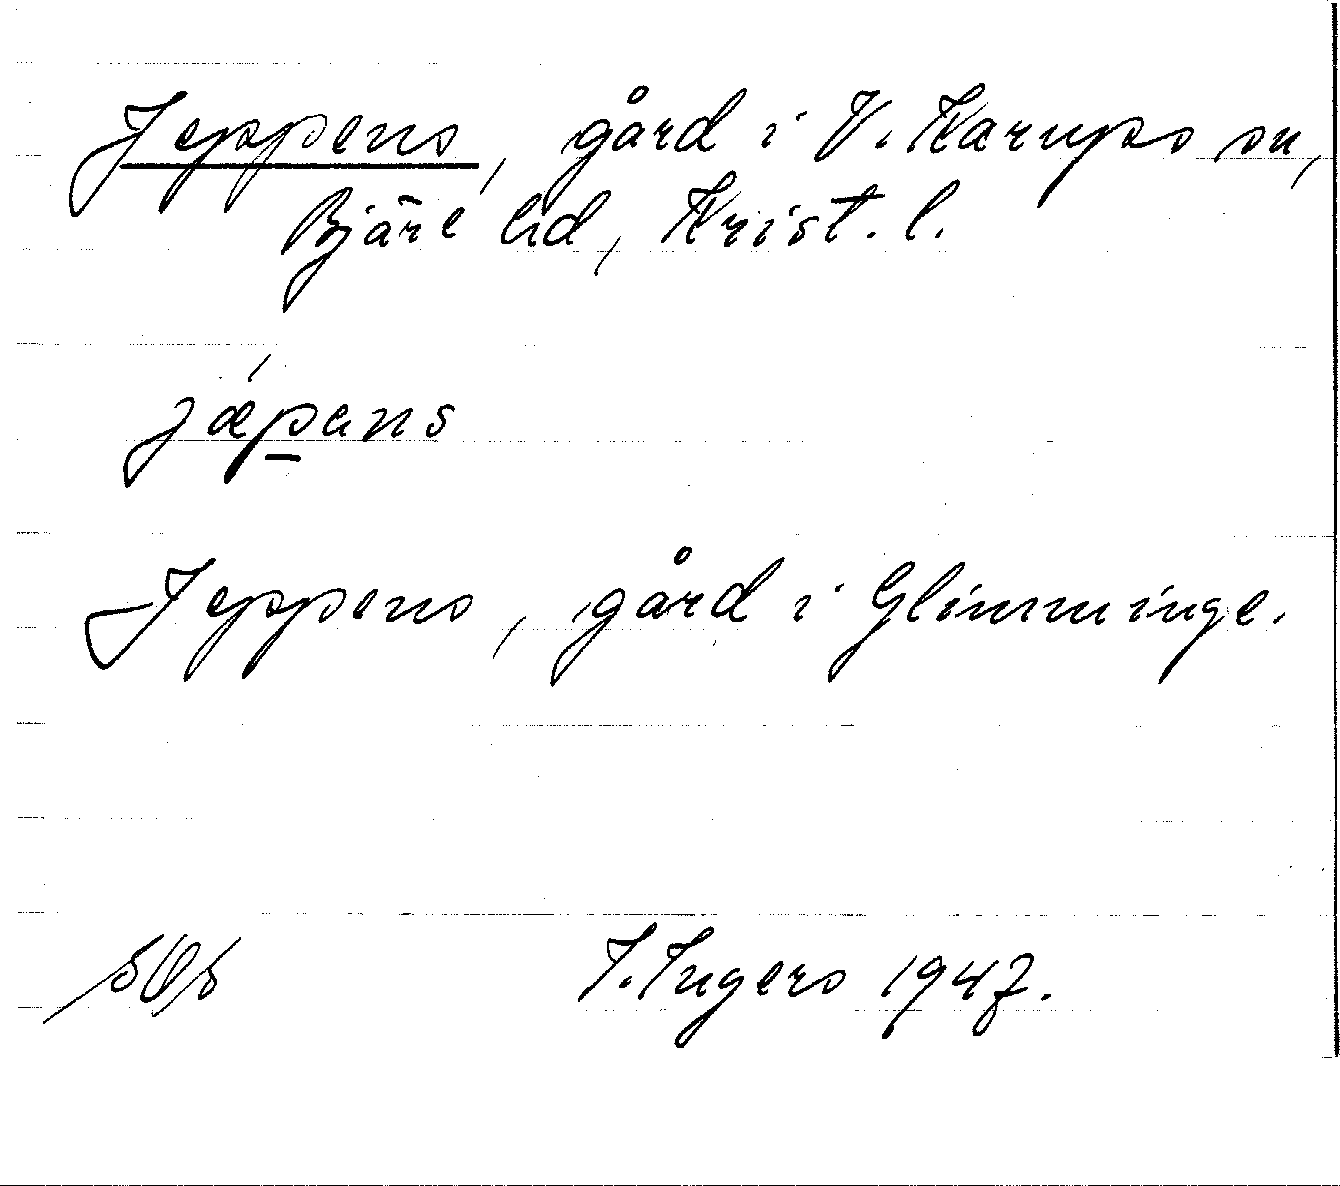 Jeppens, gård i V. Karups sn,
Bjäre hd, Krist. l.
jǽpans
Jeppens, gård i Glimminge.
I. Ingers 1947.